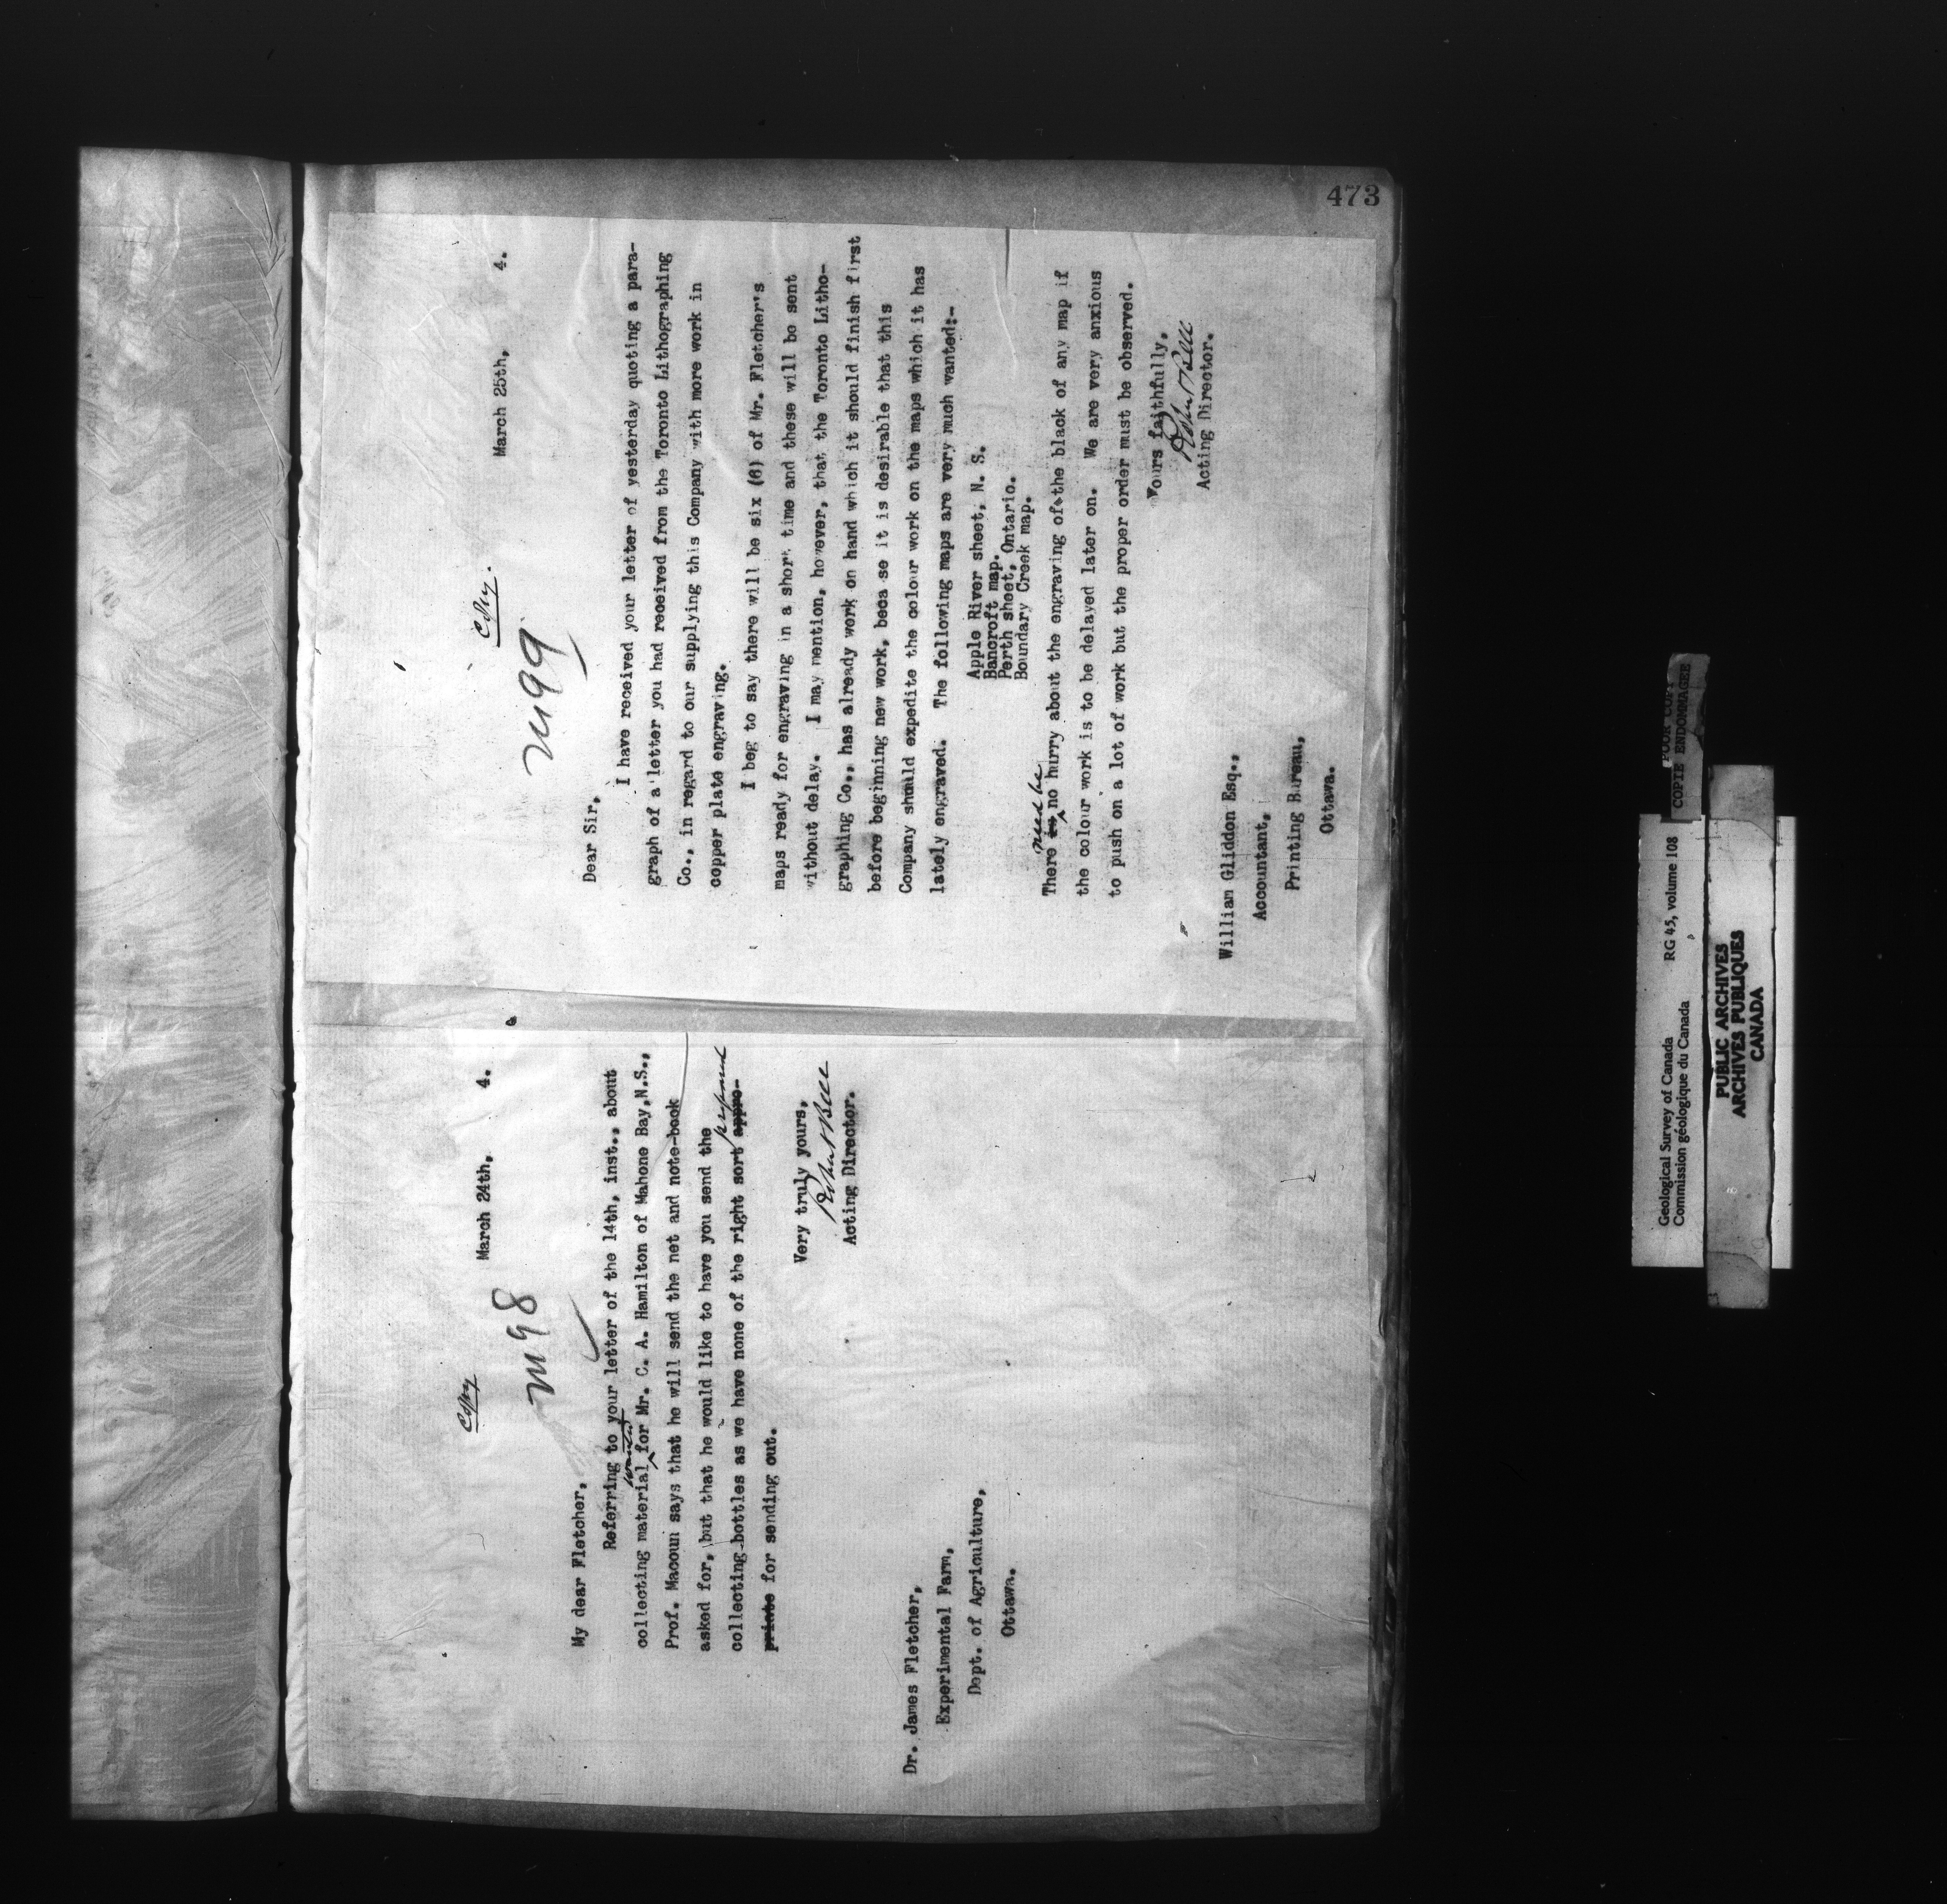 473
Copy
March 24th, 4.
M98
My dear Fletcher,
Referring to your letter of the 14th, inst., about
wanted
collecting material for Mr. C. A. Hamilton of Mahone Bay,N.S.,
Prof. Macoun says that he will send the net and note-book
asked for, but that he would like to have you send the
collecting-bottles as we have none of the right sort appro-
prepared
priate for sending out.
Very truly yours,
Robert Bell
Acting Director.
Dr. James Fletcher,
Experimental Farm,
Dept. of Agriculture,
Ottawa.
Copy.
March 25th, 4.
M99
Dear Sir,
I have received your letter of yesterday quoting a para-
graph of a letter you had received from the Toronto Lithographing
Co., in regard to our supplying this Company with more work in
copper plate engraving.
I beg to say there will be six (6) of Mr. Fletcher's
maps ready for engraving in a short time and these will be sent
without delay. I may mention, however, that the Toronto Litho-
graphing Co., has already work on hand which it should finish first
before beginning new work, beca se it is desirable that this
Company should expedite the colour work on the maps which it has
lately engraved. The following maps are very much wanted:-
Apple River sheet, N. S.
Bancroft map.
Perth sheet, Ontario.
Boundary Creek map.
need be
There is no hurry about the engraving of the black of any map if
the colour work is to be delayed later on. We are very anxious
to push on a lot of work but the proper order must be observed.
Yours faithfully,
Robert Bell
Acting Director.
William Gliddon Esq.,
Accountant,
Printing Bureau,
Ottawa.
Geological Survey of Canada RG 45, volume 108
Commission géologique du Canada
POOR COPY
COPIE ENDOMMAGEE
PUBLIC ARCHIVES
ARCHIVES PUBLIQUES
CANADA